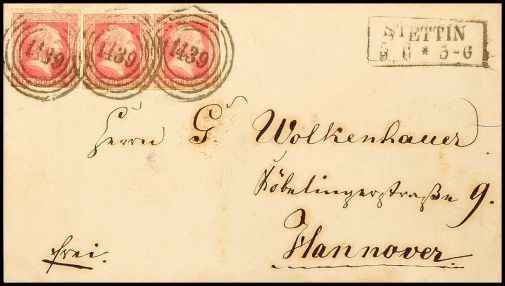 1439 1439 1439
STETTIN
5 6 * 5-6
Herrn G. Wolkenhauer.
Köbelingerstraße 9.
Hannover.
frei.